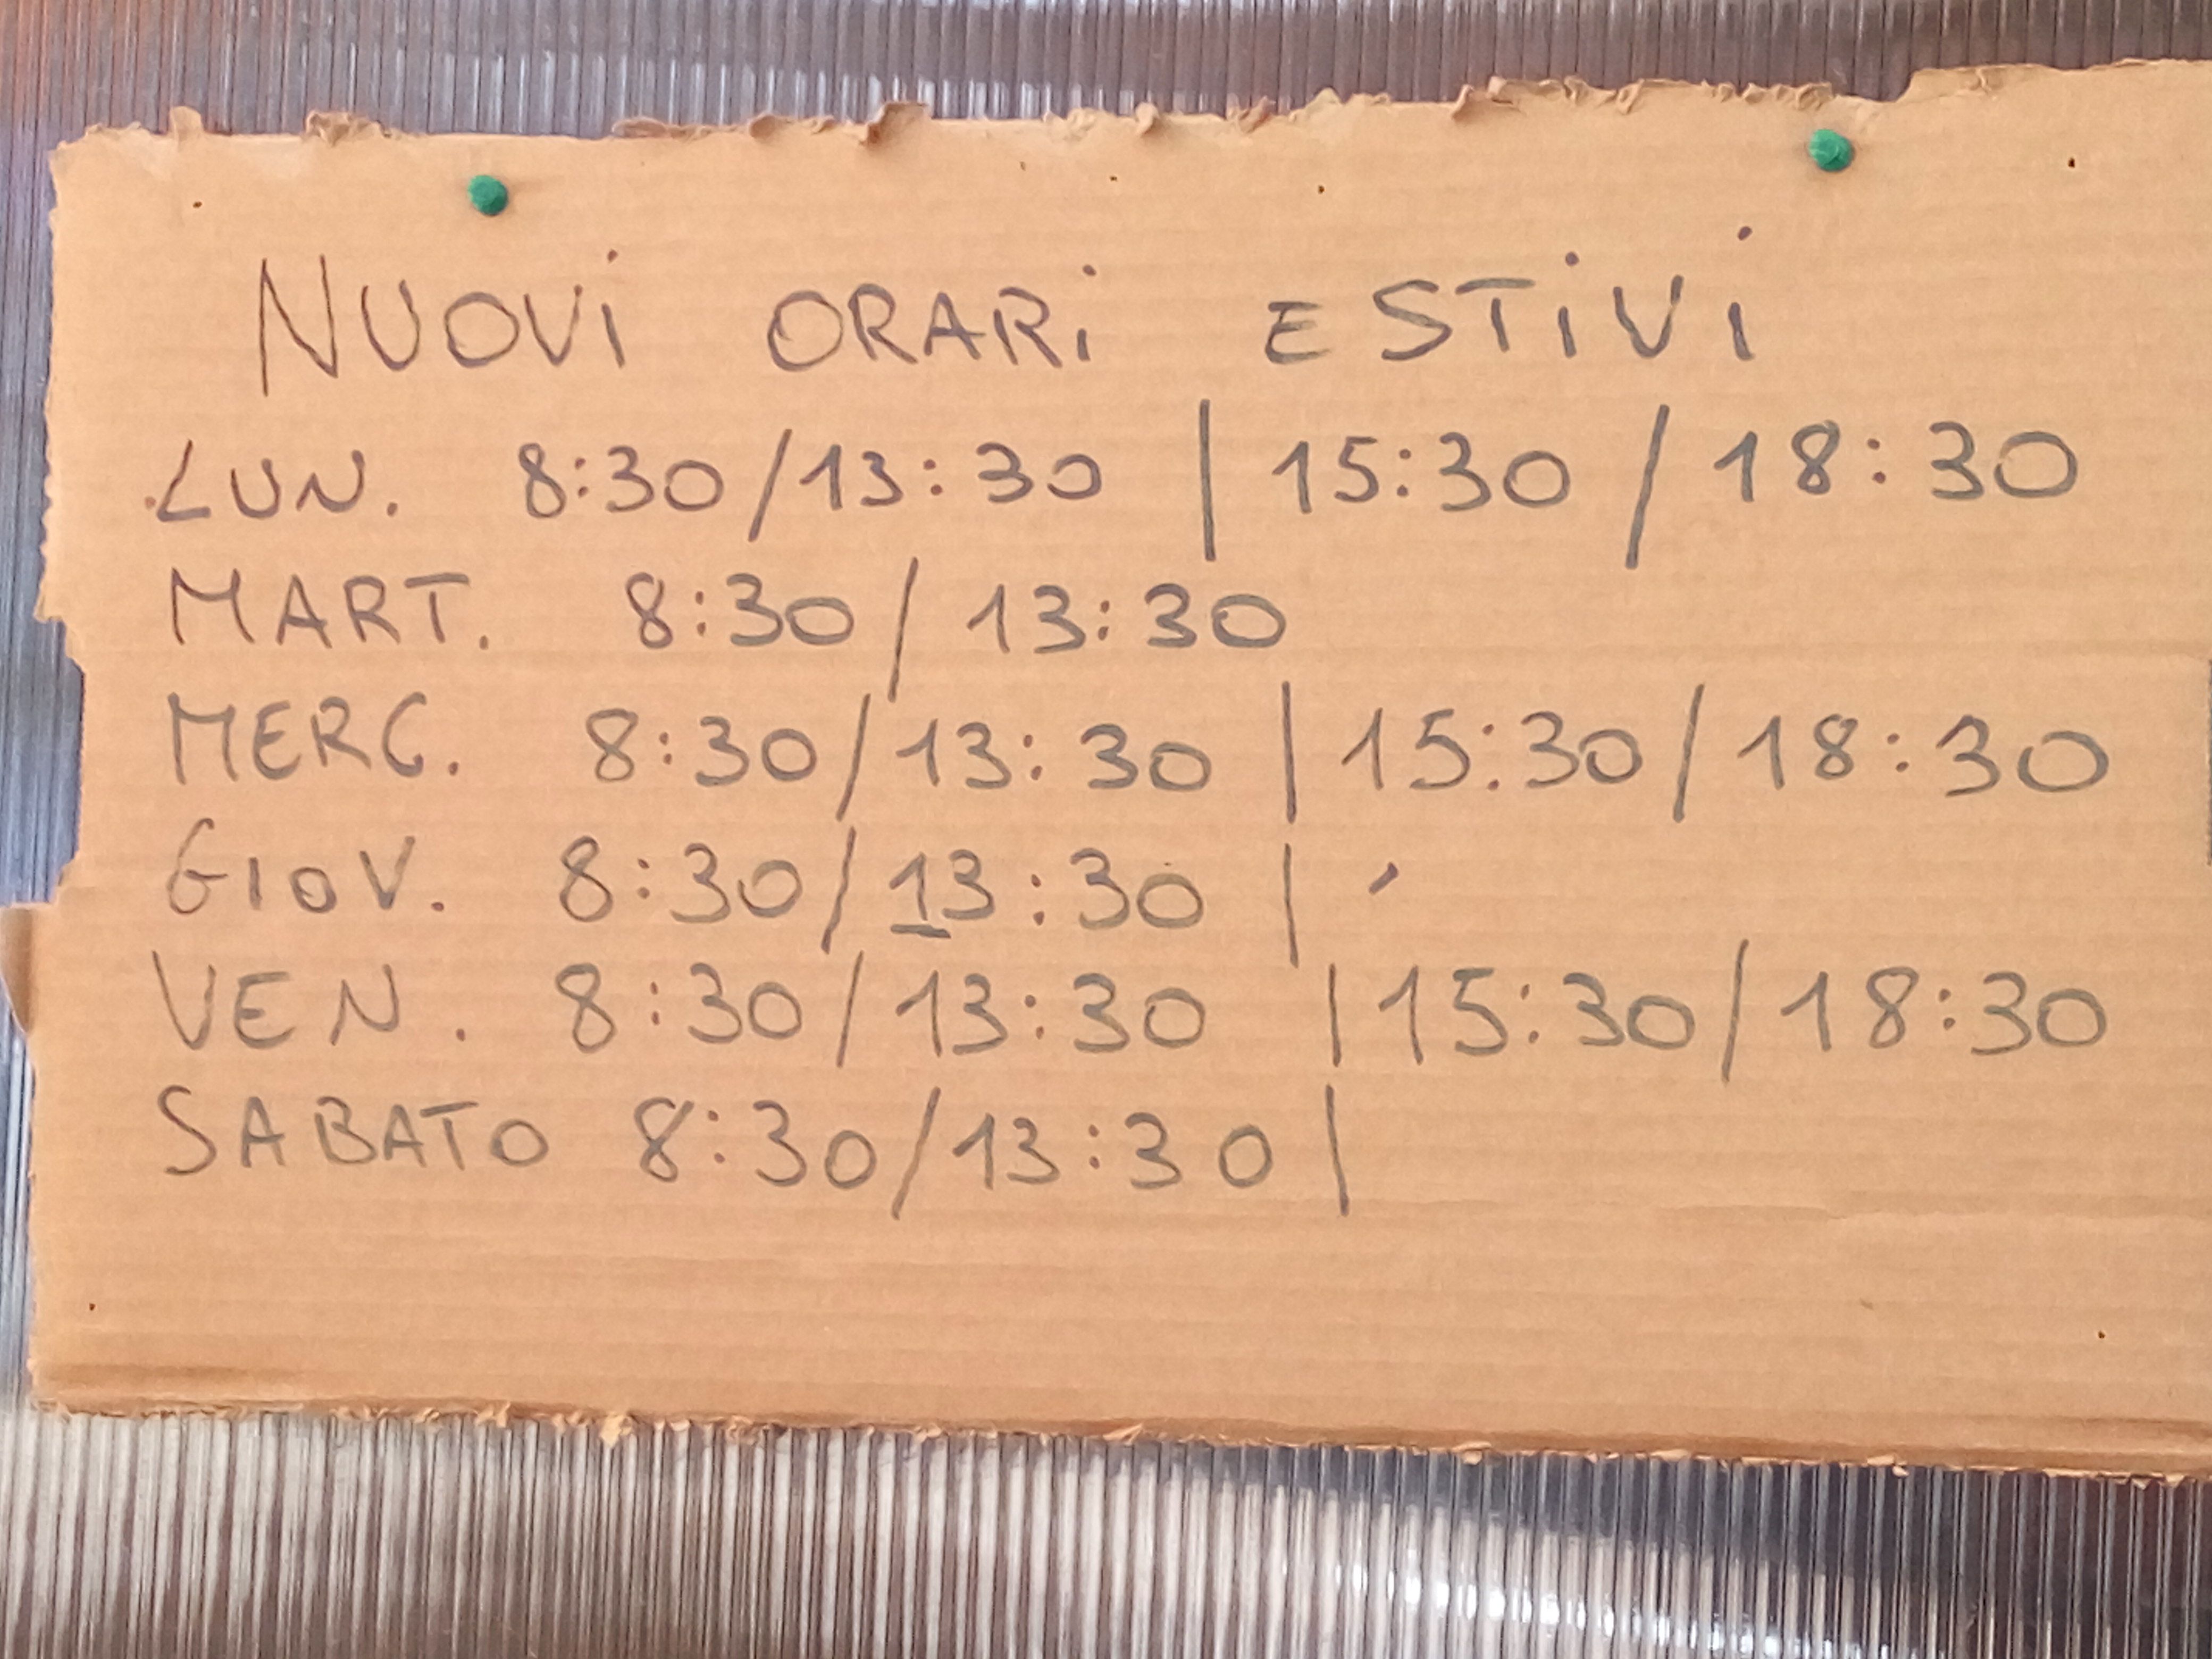 NUOVi ORARi ESTiVi
LUN. 8:30/13:30 | 15:30 / 18:30
MART. 8:30 / 13:30
MERC. 8:30/13:30 | 15:30/18:30
GIOV. 8:30/13:30 |
VEN. 8:30/13:30 | 15:30/18:30
SABATO 8:30/13:30 |